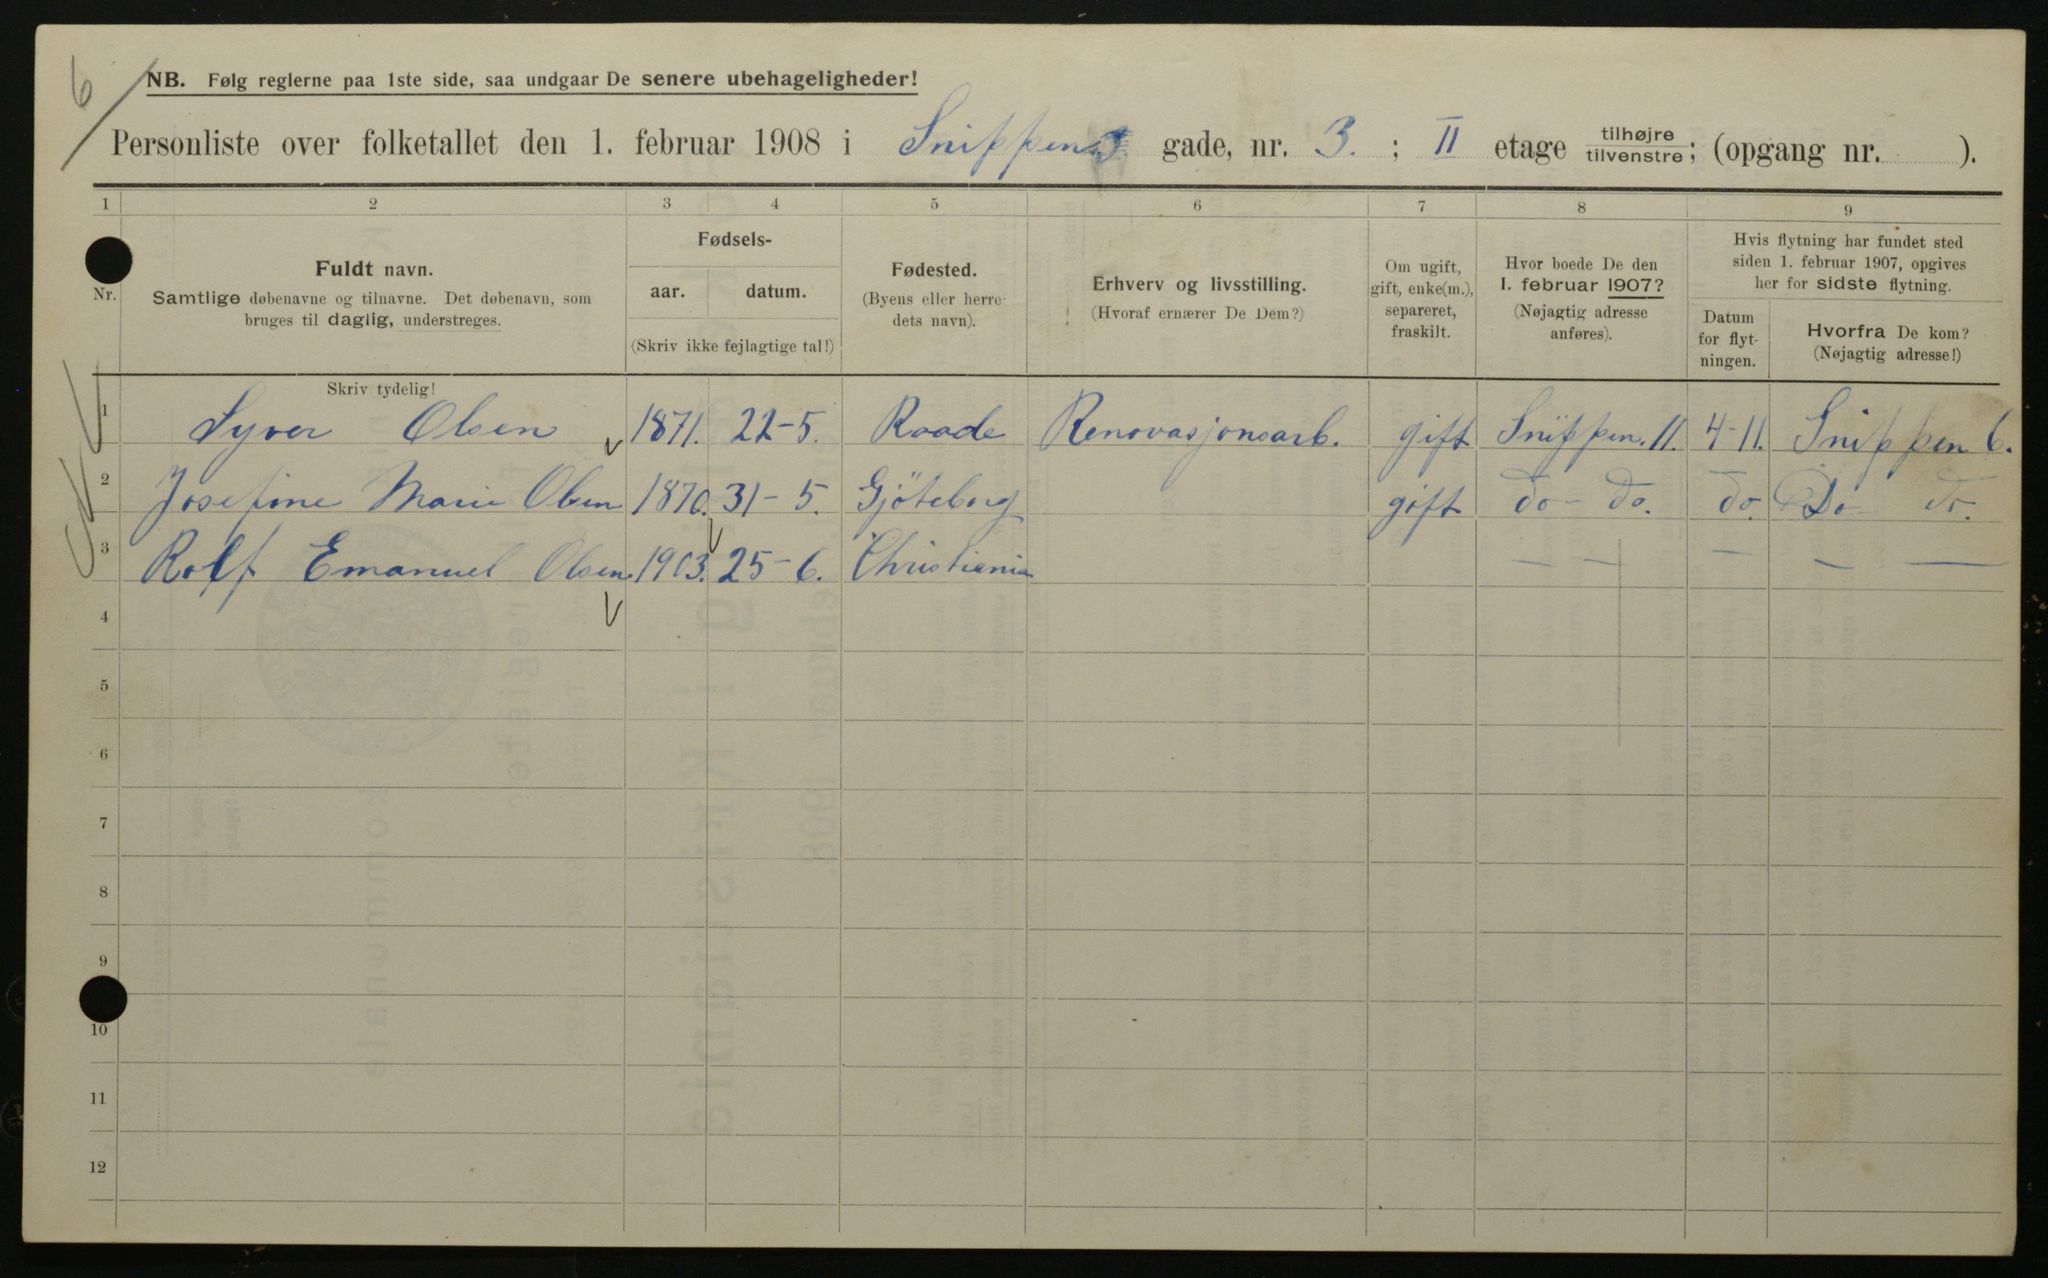 6
NB. Følg reglerne paa 1ste side, saa undgaar De senere ubehageligheder!
Personliste over folketallet den 1. februar 1908 i Snippen gade, nr. 3. ; II etage tilhøjre / tilvenstre; (opgang nr. ).
1 2 3 4 5 6 7 8 9
Nr.
Fuldt navn.
Samtlige døbenavne og tilnavne. Det døbenavn, som
bruges til daglig, understreges.
Skriv tydelig!
Fødsels-
aar. datum.
(Skriv ikke fejlagtige tal!)
Fødested.
(Byens eller herre-
dets navn).
Erhverv og livsstilling.
(Hvoraf ernærer De Dem?)
Om ugift,
gift, enke(m.),
separeret,
fraskilt.
Hvor boede De den
1. februar 1907?
(Nøjagtig adresse
anføres).
Hvis flytning har fundet sted
siden 1. februar 1907, opgives
her for sidste flytning.
Datum
for flyt-
ningen.
Hvorfra De kom?
(Nøjagtig adresse!)
1 Syver Olsen 1871. 22-5. Raade Renovasjonsarb. gift Snippen. 11. 4-11. Snippen 6.
2 Josefine Marie Olsen 1870. 31-5. Gjøteborg gift do- do. do. Do do.
3 Rolf Emanuel Olsen 1903. 25-6. Christiania — — — — —
4
5
6
7
8
9
10
11
12